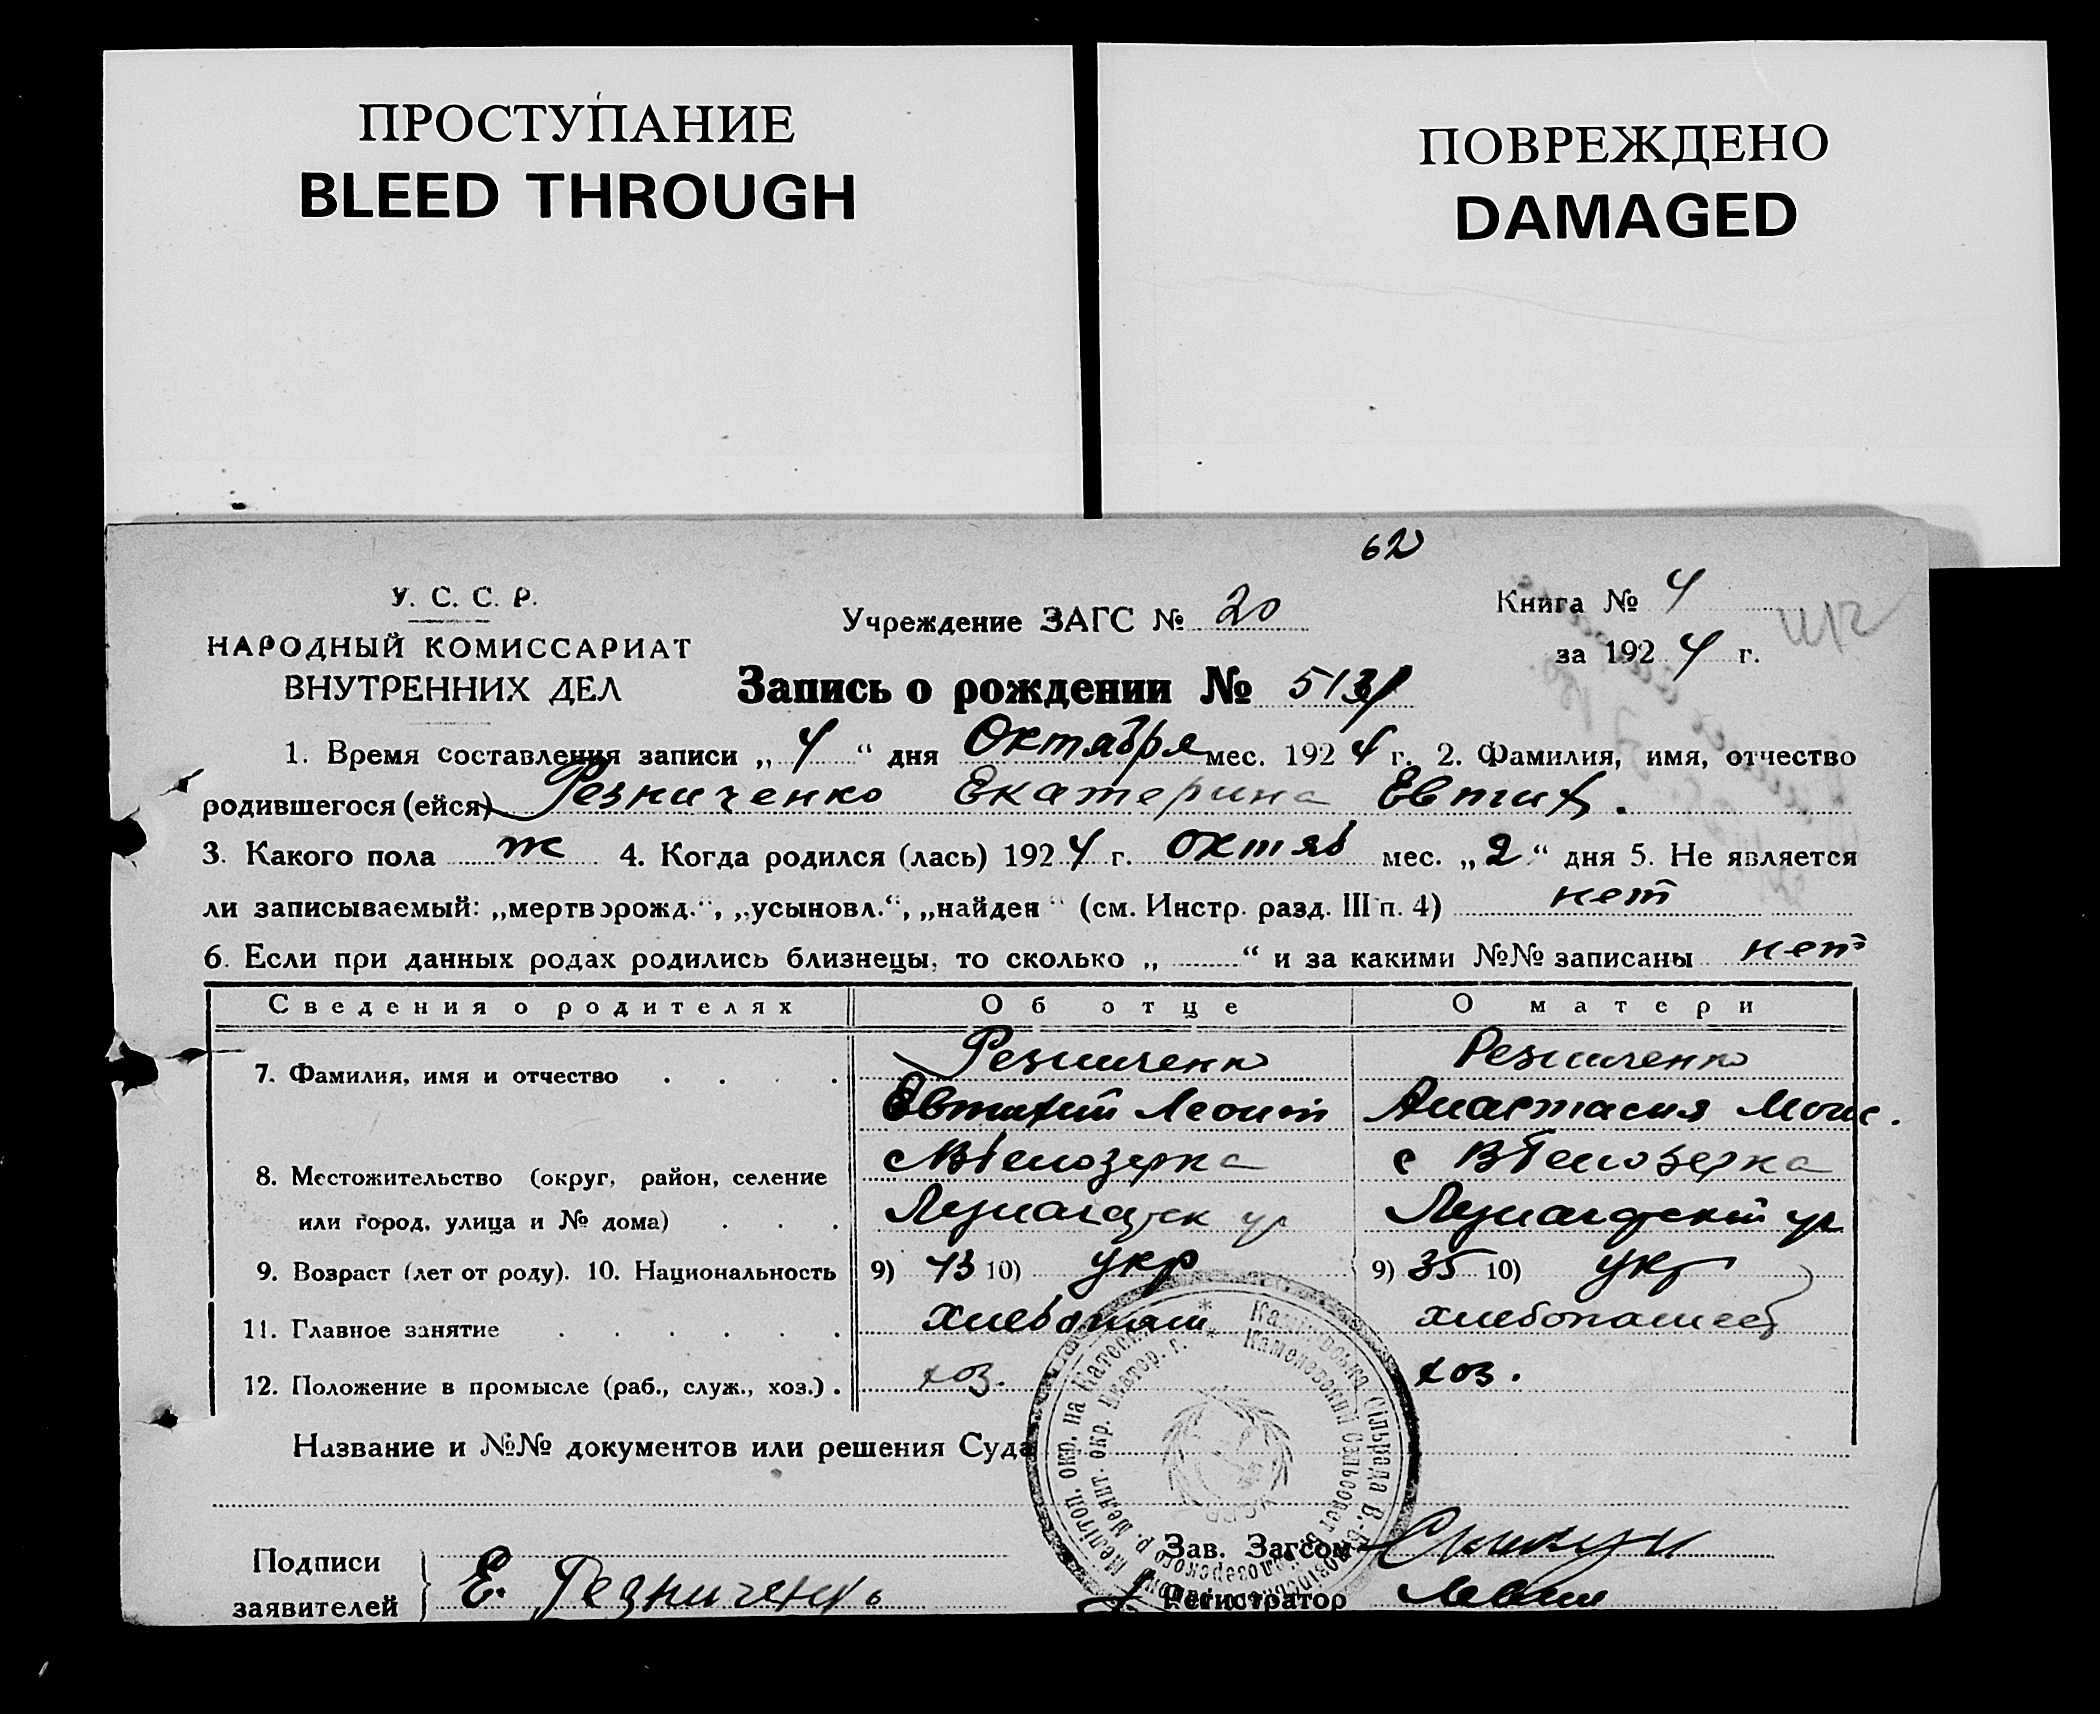 ПРОСТУПАНИЕ
BLEED THROUGH
ПОВРЕЖДЕНО
DAMAGED
62
У. С. С. Р.
НАРОДНЫЙ КОМИССАРИАТ
ВНУТРЕННИХ ДЕЛ
Учреждение ЗАГС № 20
Книга № 4
за 1924 г.
Запись о рождении №
1. Время составления записи „4“ дня Октября мес. 1924 г. 2. Фамилия, имя, отчество
родившегося (ейся) Резниченко Екатерина Евтих.
3. Какого пола ж 4. Когда родился (лась) 1924 г. октяб мес. „2“ дня 5. Не является
ли записываемый: „мертворожд.“, „усыновл.“, „найден“ (см. Инстр. разд. III п. 4) нет
6. Если при данных родах родились близнецы, то сколько „ “ и за какими №№ записаны нет
Сведения о родителях Об отце О матери
7. Фамилия, имя и отчество Резниченко Резниченко
Евтихий Леонт Анастасия Моис.
8. Местожительство (округ, район, селение с ВБелозерка с ВБелозерка
или город, улица и № дома)
9. Возраст (лет от роду). 10. Национальность 9) 43 10) укр 9) 35 10) укр
11. Главное занятие хлебопаш хлебопашеств
12. Положение в промысле (раб., служ., хоз.) хоз. хоз.
Название и №№ документов или решения Суда
Подписи
заявителей Е. Резниченко
Зав. Загсом
Регистратор